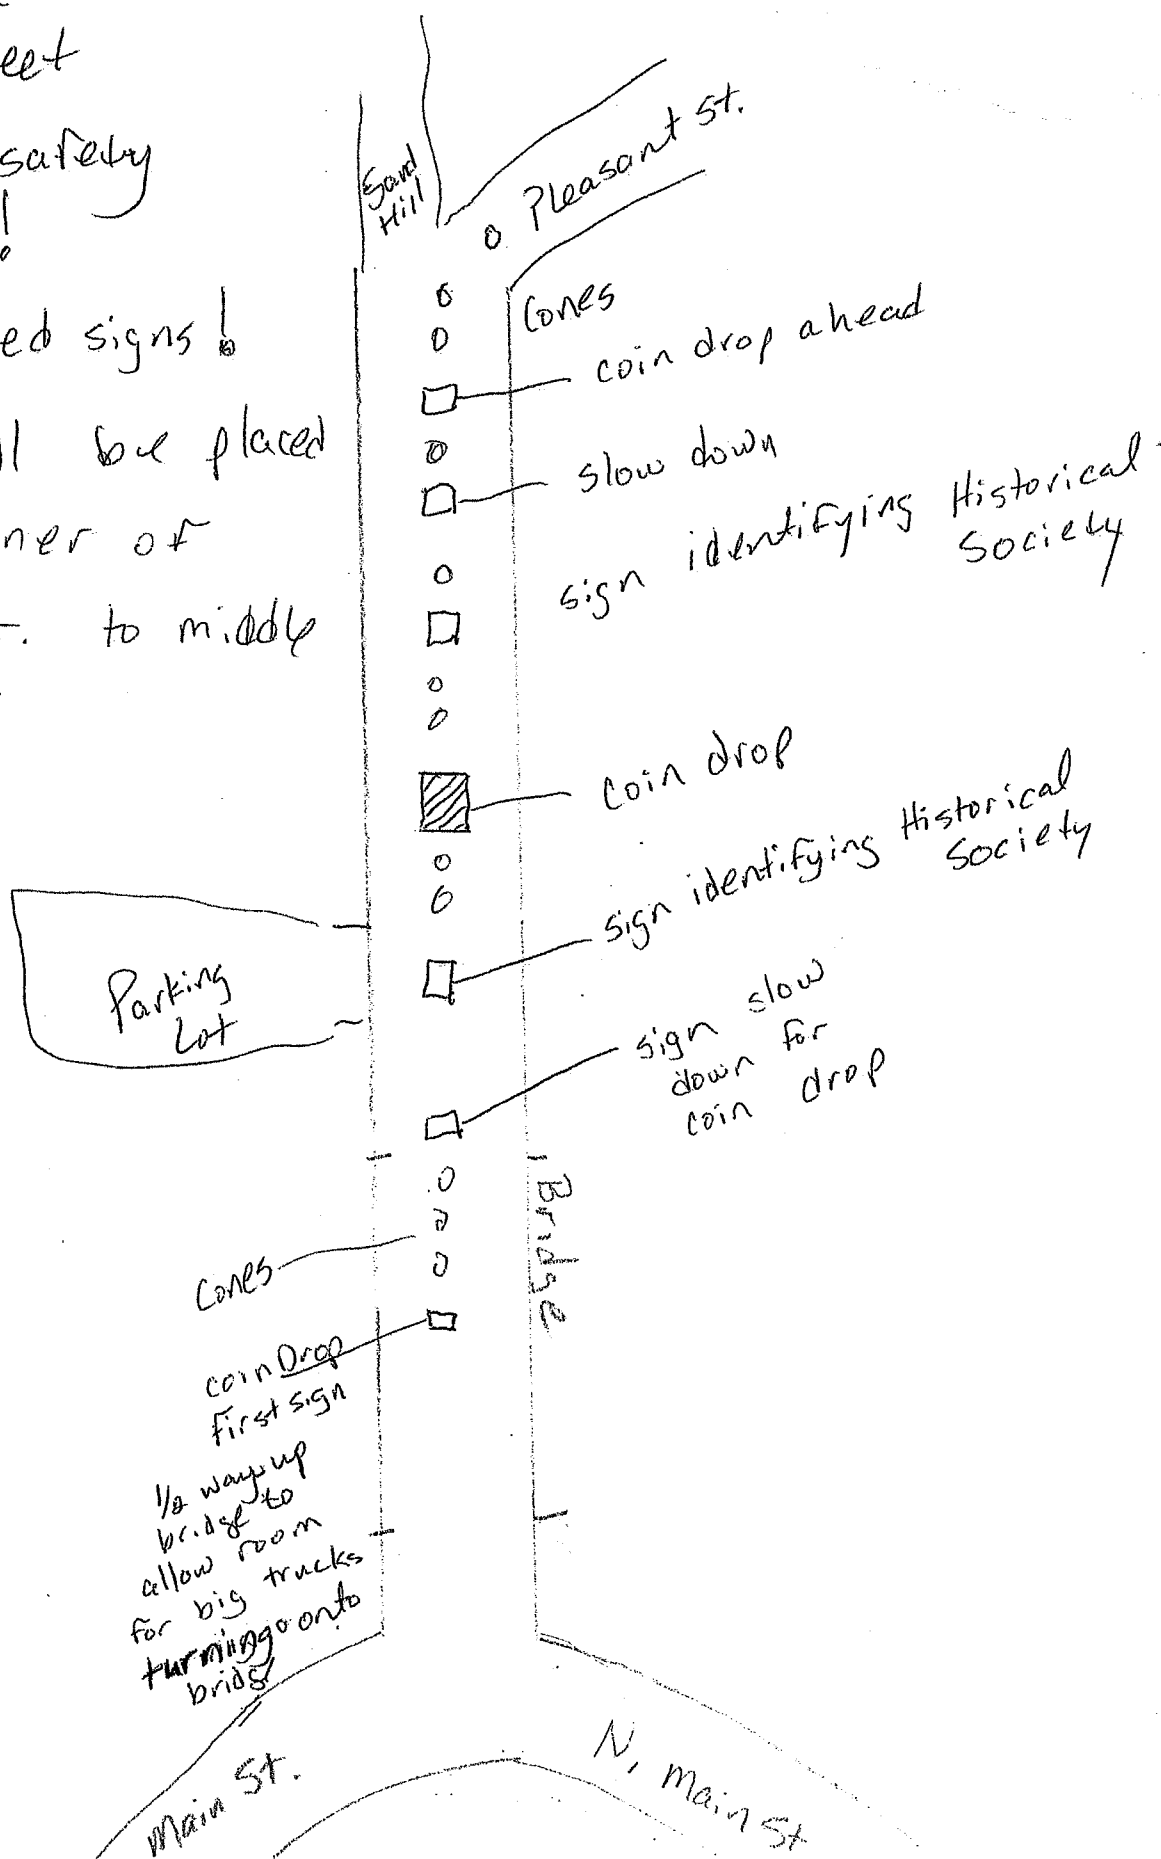 eet
safety
!
ed signs!
ll be placed
ner of
t. to middle
Sand
Hill
Pleasant St.
Cones
coin drop ahead
slow down
sign identifying Historical
Society
coin drop
sign identifying Historical
Society
Parking
Lot
sign slow
down for
coin drop
Bridge
Cones
coin Drop
First sign
1/2 way up
bridge to
allow room
for big trucks
turning onto
bridge
Main St.
N. Main St